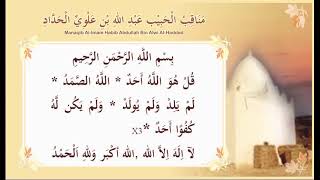 مَنَاقِبُ الْحَبِيْبِ عَبْدِ اللهِ بْنِ عَلْوِيْ الْحَدَّادِ
Manaqib Al-Imam Habib Abdullah Bin Alwi Al-Haddad
بِسْمِ اللهِ الرَّحْمَنِ الرَّحِيْمِ
قُلْ هُوَ اللهُ أَحَدٌ * اللهُ الصَّمَدُ *
لَمْ يَلِدْ وَلَمْ يُولَدْ * وَلَمْ يَكُن لَّهُ
كُفُوًا أَحَدٌ * X3
لآ اِلهَ اِلاَّ الله ,اللهُ اَكْبَر وَللهِ اْلحَمْدُ